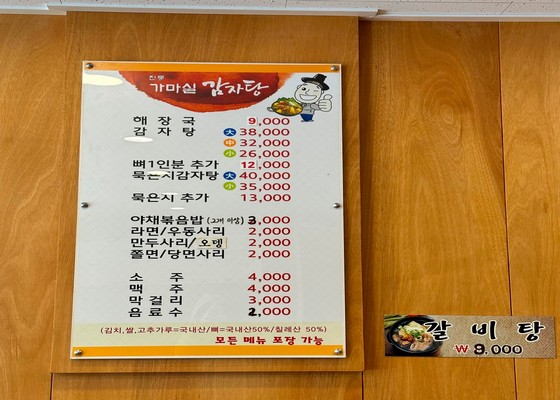 전통
가마실 감자탕
해 장 국 9,000
감 자 탕 大 38,000
中 32,000
小 26,000
뼈1인분 추가 12,000
묵은지감자탕 大 40,000
小 35,000
묵은지 추가 13,000
야채볶음밥 (2개 이상) 3,000
라면/우동사리 2,000
만두사리/오뎅 2,000
쫄면/당면사리 2,000
소 주 4,000
맥 주 4,000
막 걸 리 3,000
음 료 수 2,000
(김치,쌀,고추가루=국내산/뼈=국내산50%/칠레산 50%)
모든 메뉴 포장 가능
갈 비 탕
₩ 9,000